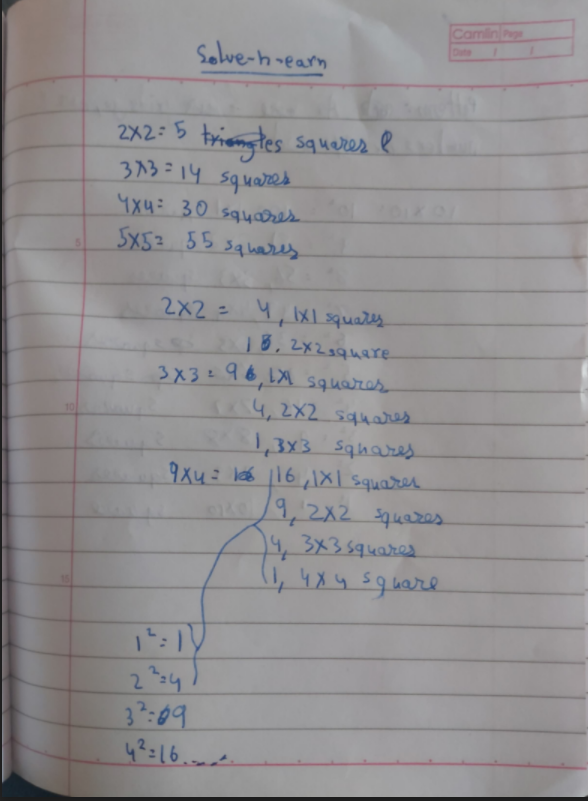 Camlin Page
Date / /
Solve-n-earn
2x2= 5 triangles squares
3x3=14 squares
4x4= 30 squares
5x5= 55 squares
5
2x2 = 4, 1x1 squares
1, 2x2 square
3x3= 9, 1x1 squares
10
4, 2x2 squares
1, 3x3 squares
9x4= 16 16, 1x1 squares
9, 2x2 squares
4, 3x3 squares
15
1, 4x4 square
1²=1
2²=4
3²=9
4²=16.....